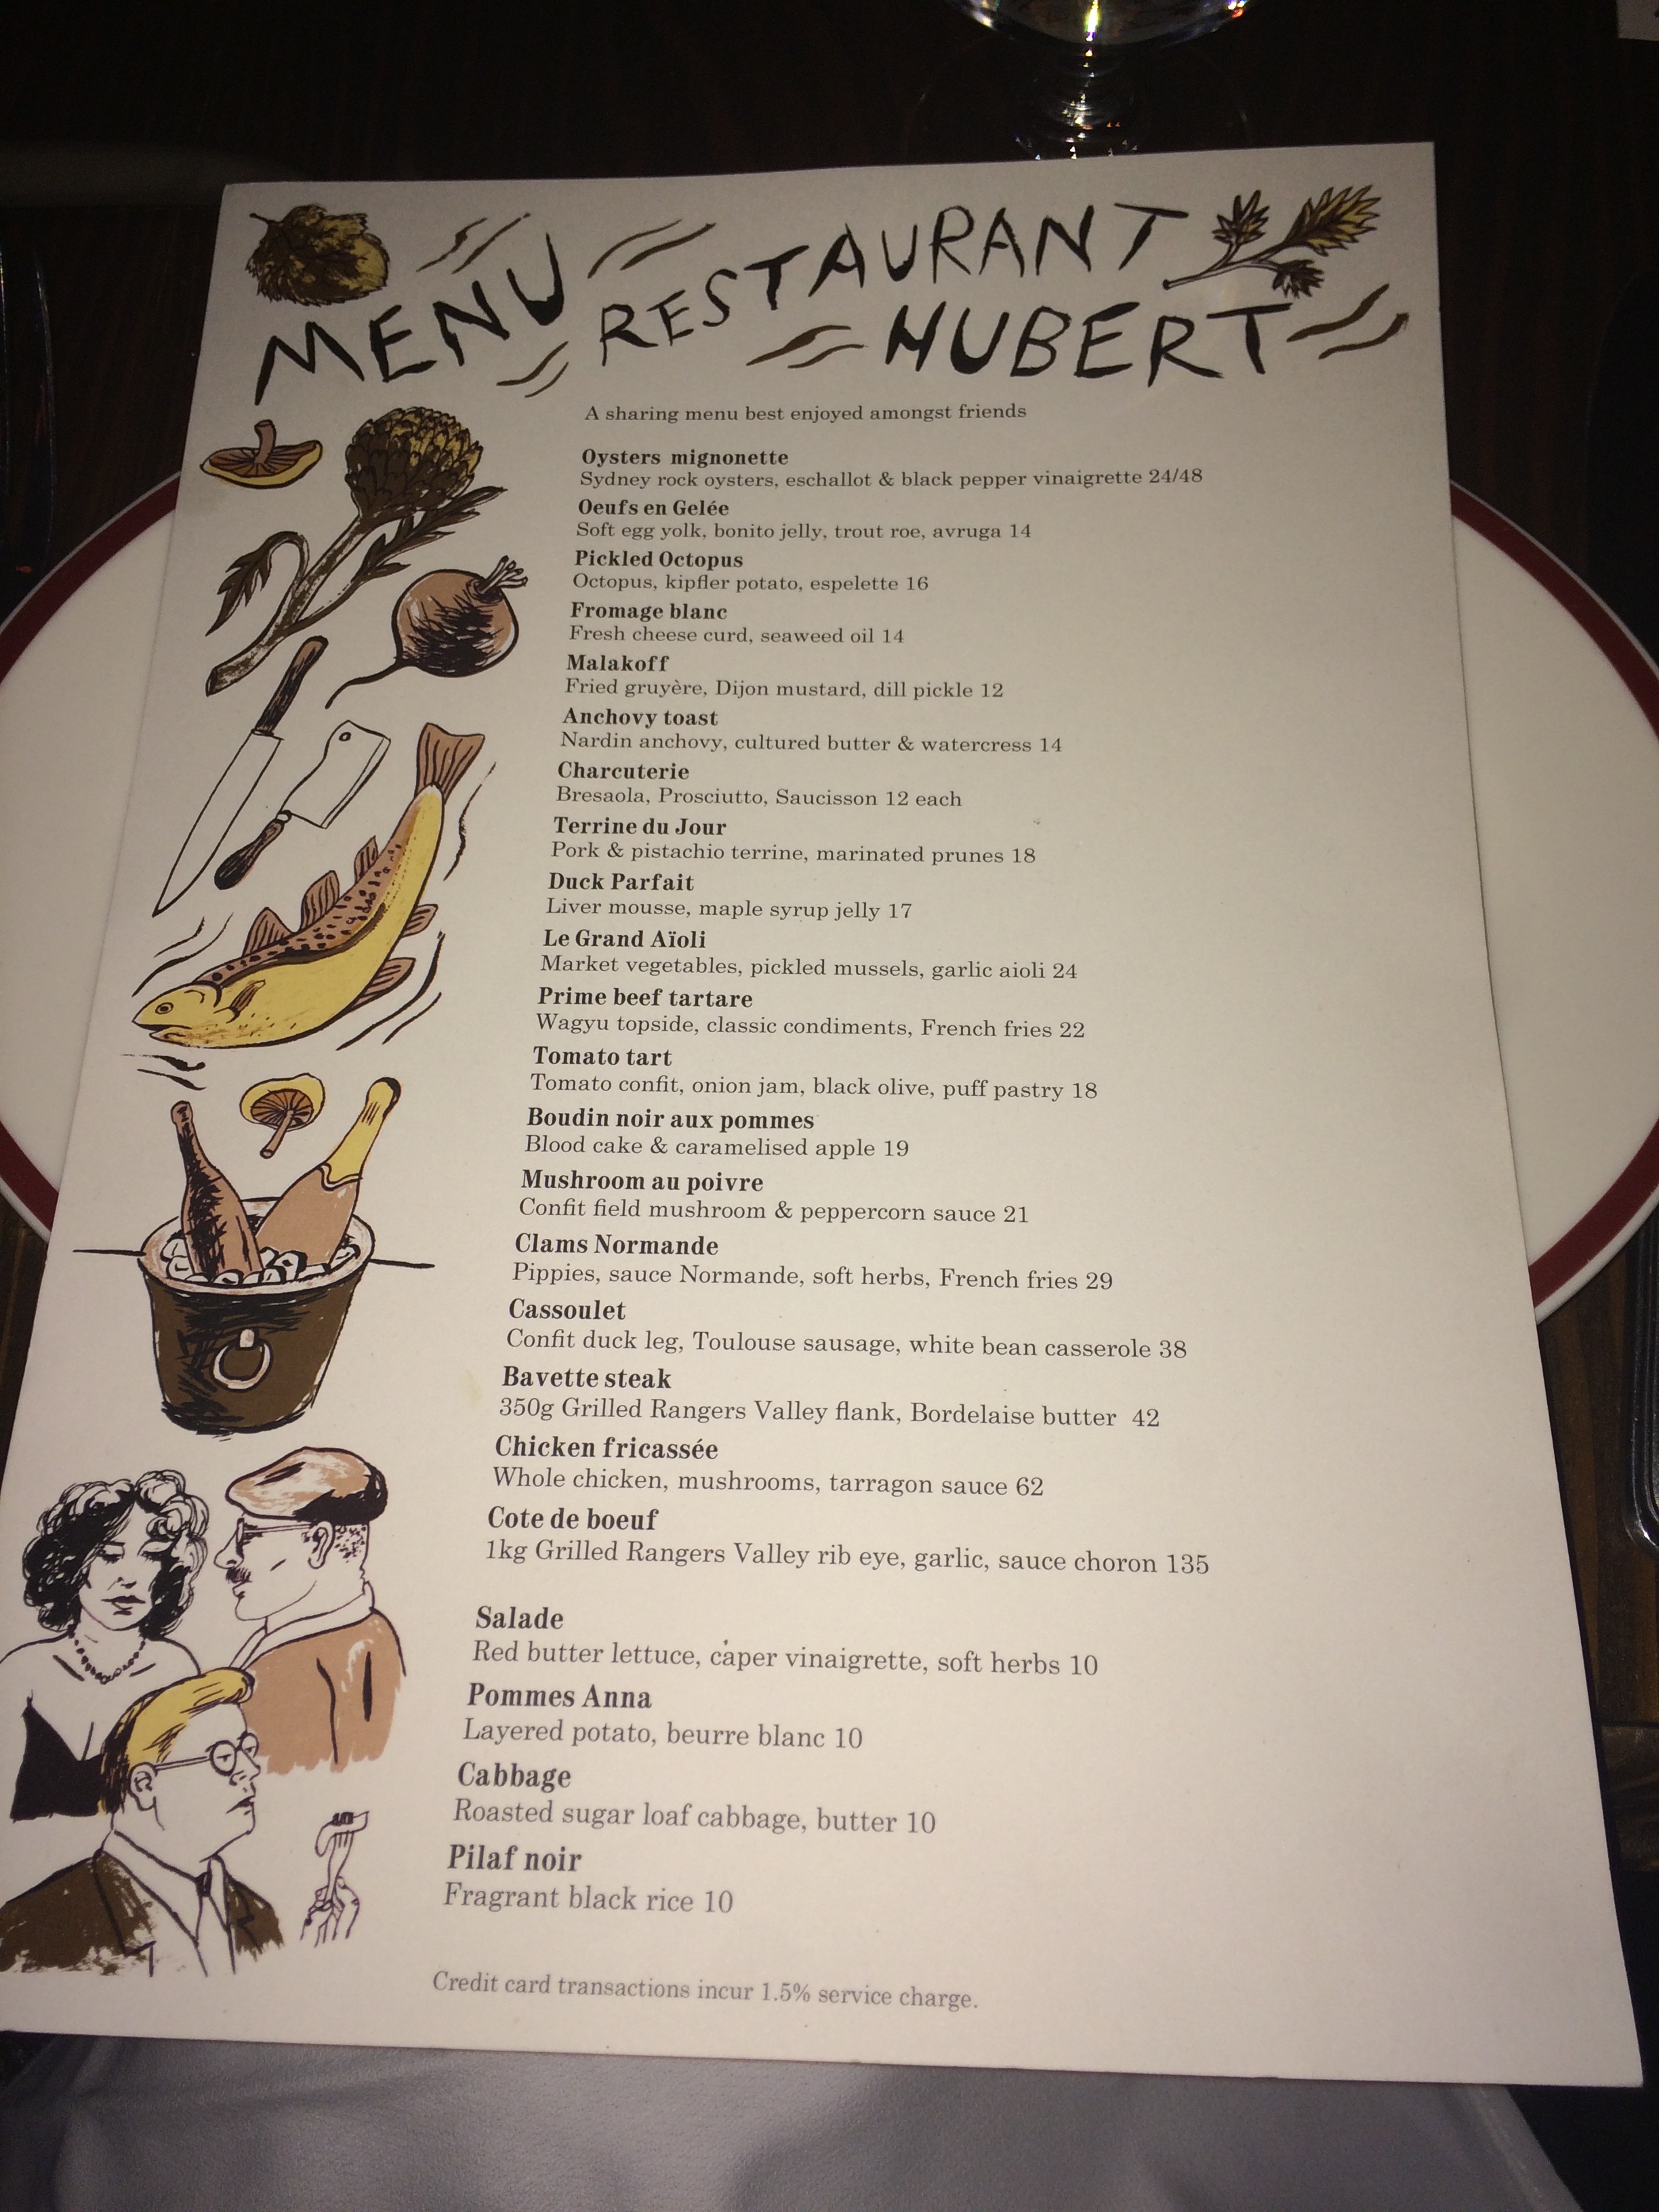 MENU RESTAURANT
HUBERT
A sharing menu best enjoyed amongst friends
Oysters mignonette
Sydney rock oysters, eschallot & black pepper vinaigrette 24/48
Oeufs en Gelée
Soft egg yolk, bonito jelly, trout roe, avruga 14
Pickled Octopus
Octopus, kipfler potato, espelette 16
Fromage blanc
Fresh cheese curd, seaweed oil 14
Malakoff
Fried gruyère, Dijon mustard, dill pickle 12
Anchovy toast
Nardin anchovy, cultured butter & watercress 14
Charcuterie
Bresaola, Prosciutto, Saucisson 12 each
Terrine du Jour
Pork & pistachio terrine, marinated prunes 18
Duck Parfait
Liver mousse, maple syrup jelly 17
Le Grand Aïoli
Market vegetables, pickled mussels, garlic aioli 24
Prime beef tartare
Wagyu topside, classic condiments, French fries 22
Tomato tart
Tomato confit, onion jam, black olive, puff pastry 18
Boudin noir aux pommes
Blood cake & caramelised apple 19
Mushroom au poivre
Confit field mushroom & peppercorn sauce 21
Clams Normande
Pippies, sauce Normande, soft herbs, French fries 29
Cassoulet
Confit duck leg, Toulouse sausage, white bean casserole 38
Bavette steak
350g Grilled Rangers Valley flank, Bordelaise butter 42
Chicken fricassée
Whole chicken, mushrooms, tarragon sauce 62
Cote de boeuf
1kg Grilled Rangers Valley rib eye, garlic, sauce choron 135
Salade
Red butter lettuce, caper vinaigrette, soft herbs 10
Pommes Anna
Layered potato, beurre blanc 10
Cabbage
Roasted sugar loaf cabbage, butter 10
Pilaf noir
Fragrant black rice 10
Credit card transactions incur 1.5% service charge.